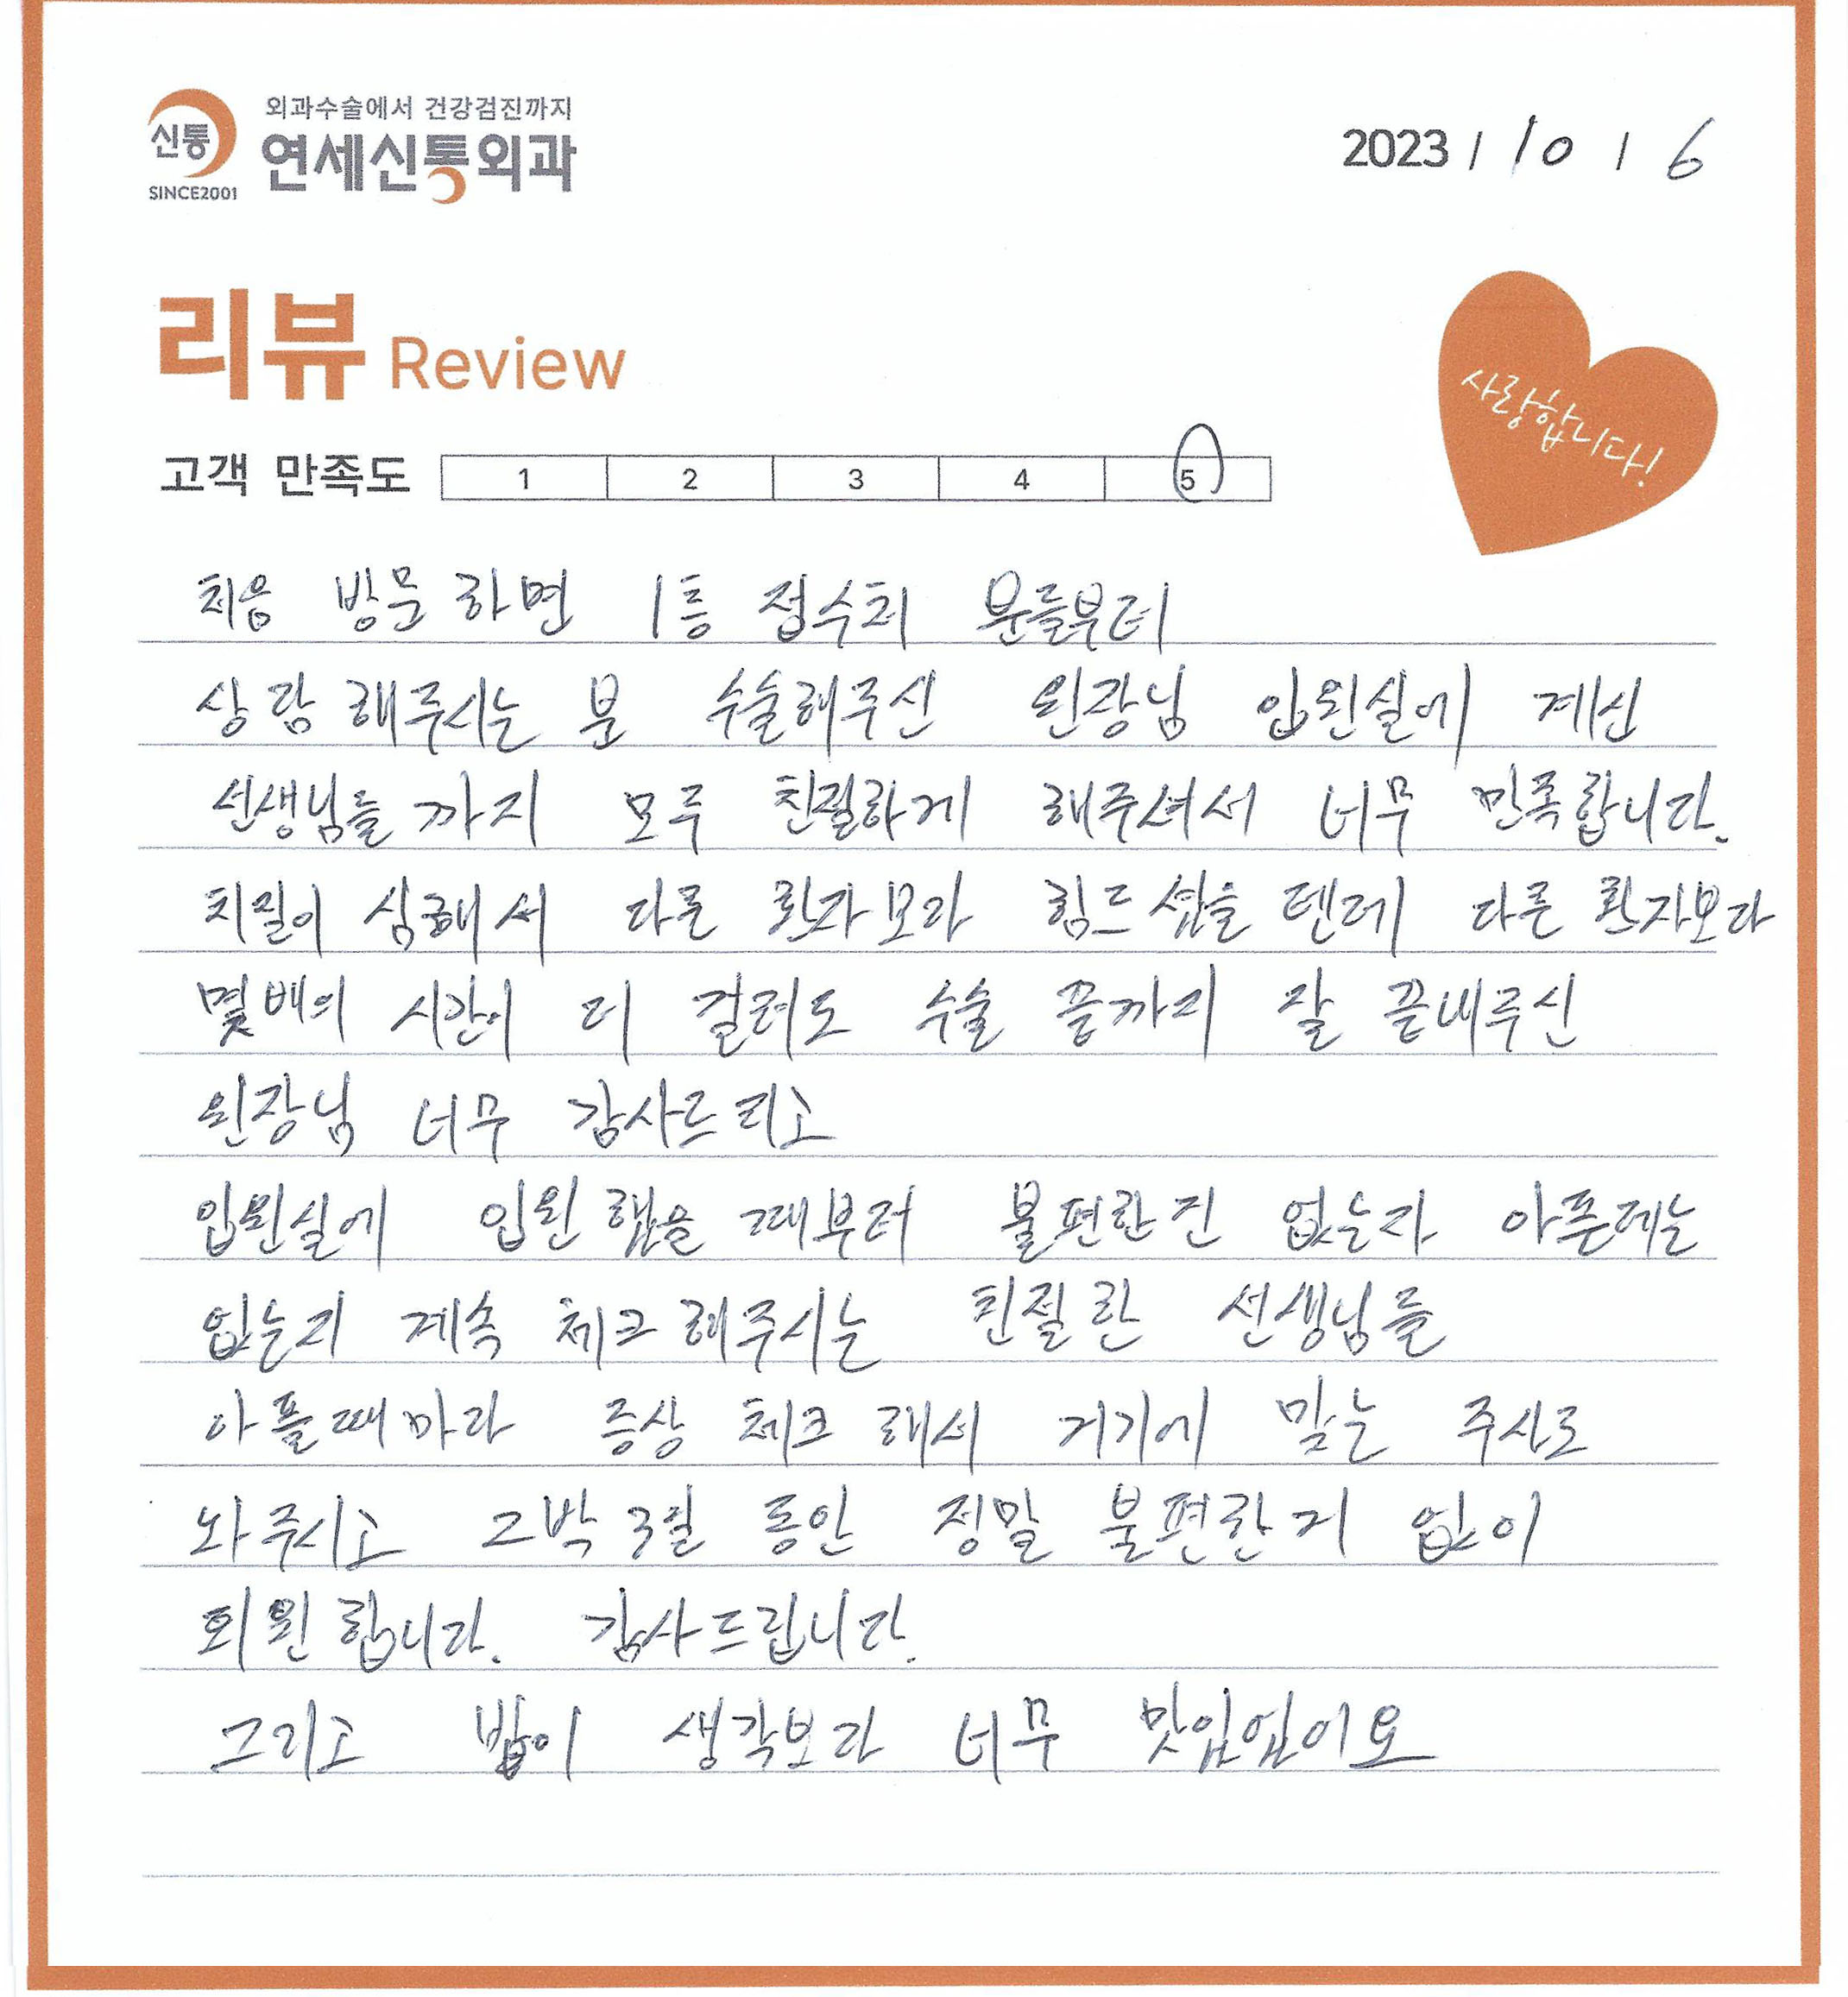 외과수술에서 건강검진까지
신통
연세신통외과
SINCE2001
2023 / 10 / 6
리뷰 Review
사랑합니다!
고객 만족도 1 2 3 4 5
처음 방문하면 1층 접수처 분들부터
상담해주시는 분 수술해주신 원장님 입원실에 계신
선생님들까지 모두 친절하게 해주셔서 너무 만족합니다.
치질이 심해서 다른 환자보다 힘드셨을 텐데 다른 환자보다
몇배의 시간이 더 걸려도 수술 끝까지 잘 끝내주신
원장님 너무 감사드리고
입원실에 입원했을 때부터 불편한진 없는지 아픈데는
없는지 계속 체크해주시는 친절한 선생님들
아플때마다 증상 체크해서 거기에 맞는 주사로
놔주시고 2박3일 동안 정말 불편한거 없이
퇴원합니다. 감사드립니다.
그리고 밥이 생각보다 너무 맛있었어요